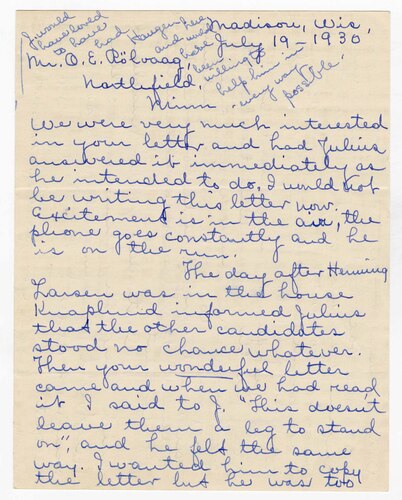 I would
have loved
to have
had
Haugen here
and would
have
been
willing to
help him in
every way
possible.
Madison, Wis,
July 19-1930
Mr. O. E. Rölvaag,
Northfield,
Minn.
We were very much interested
in your letter and had Julius
answered it immediately as
he intended to do, I would not
be writing this letter now.
Excitement is in the air, the
phone goes constantly and he
is on the run.
The day after Henning
Larsen was in the house
Knaplund informed Julius
that the other candidates
stood no chance whatever.
Then your wonderful letter
came and when we had read
it I said to J. "This doesn't
leave them a leg to stand
on", and he felt the same
way. I wanted him to copy
the letter but he was too